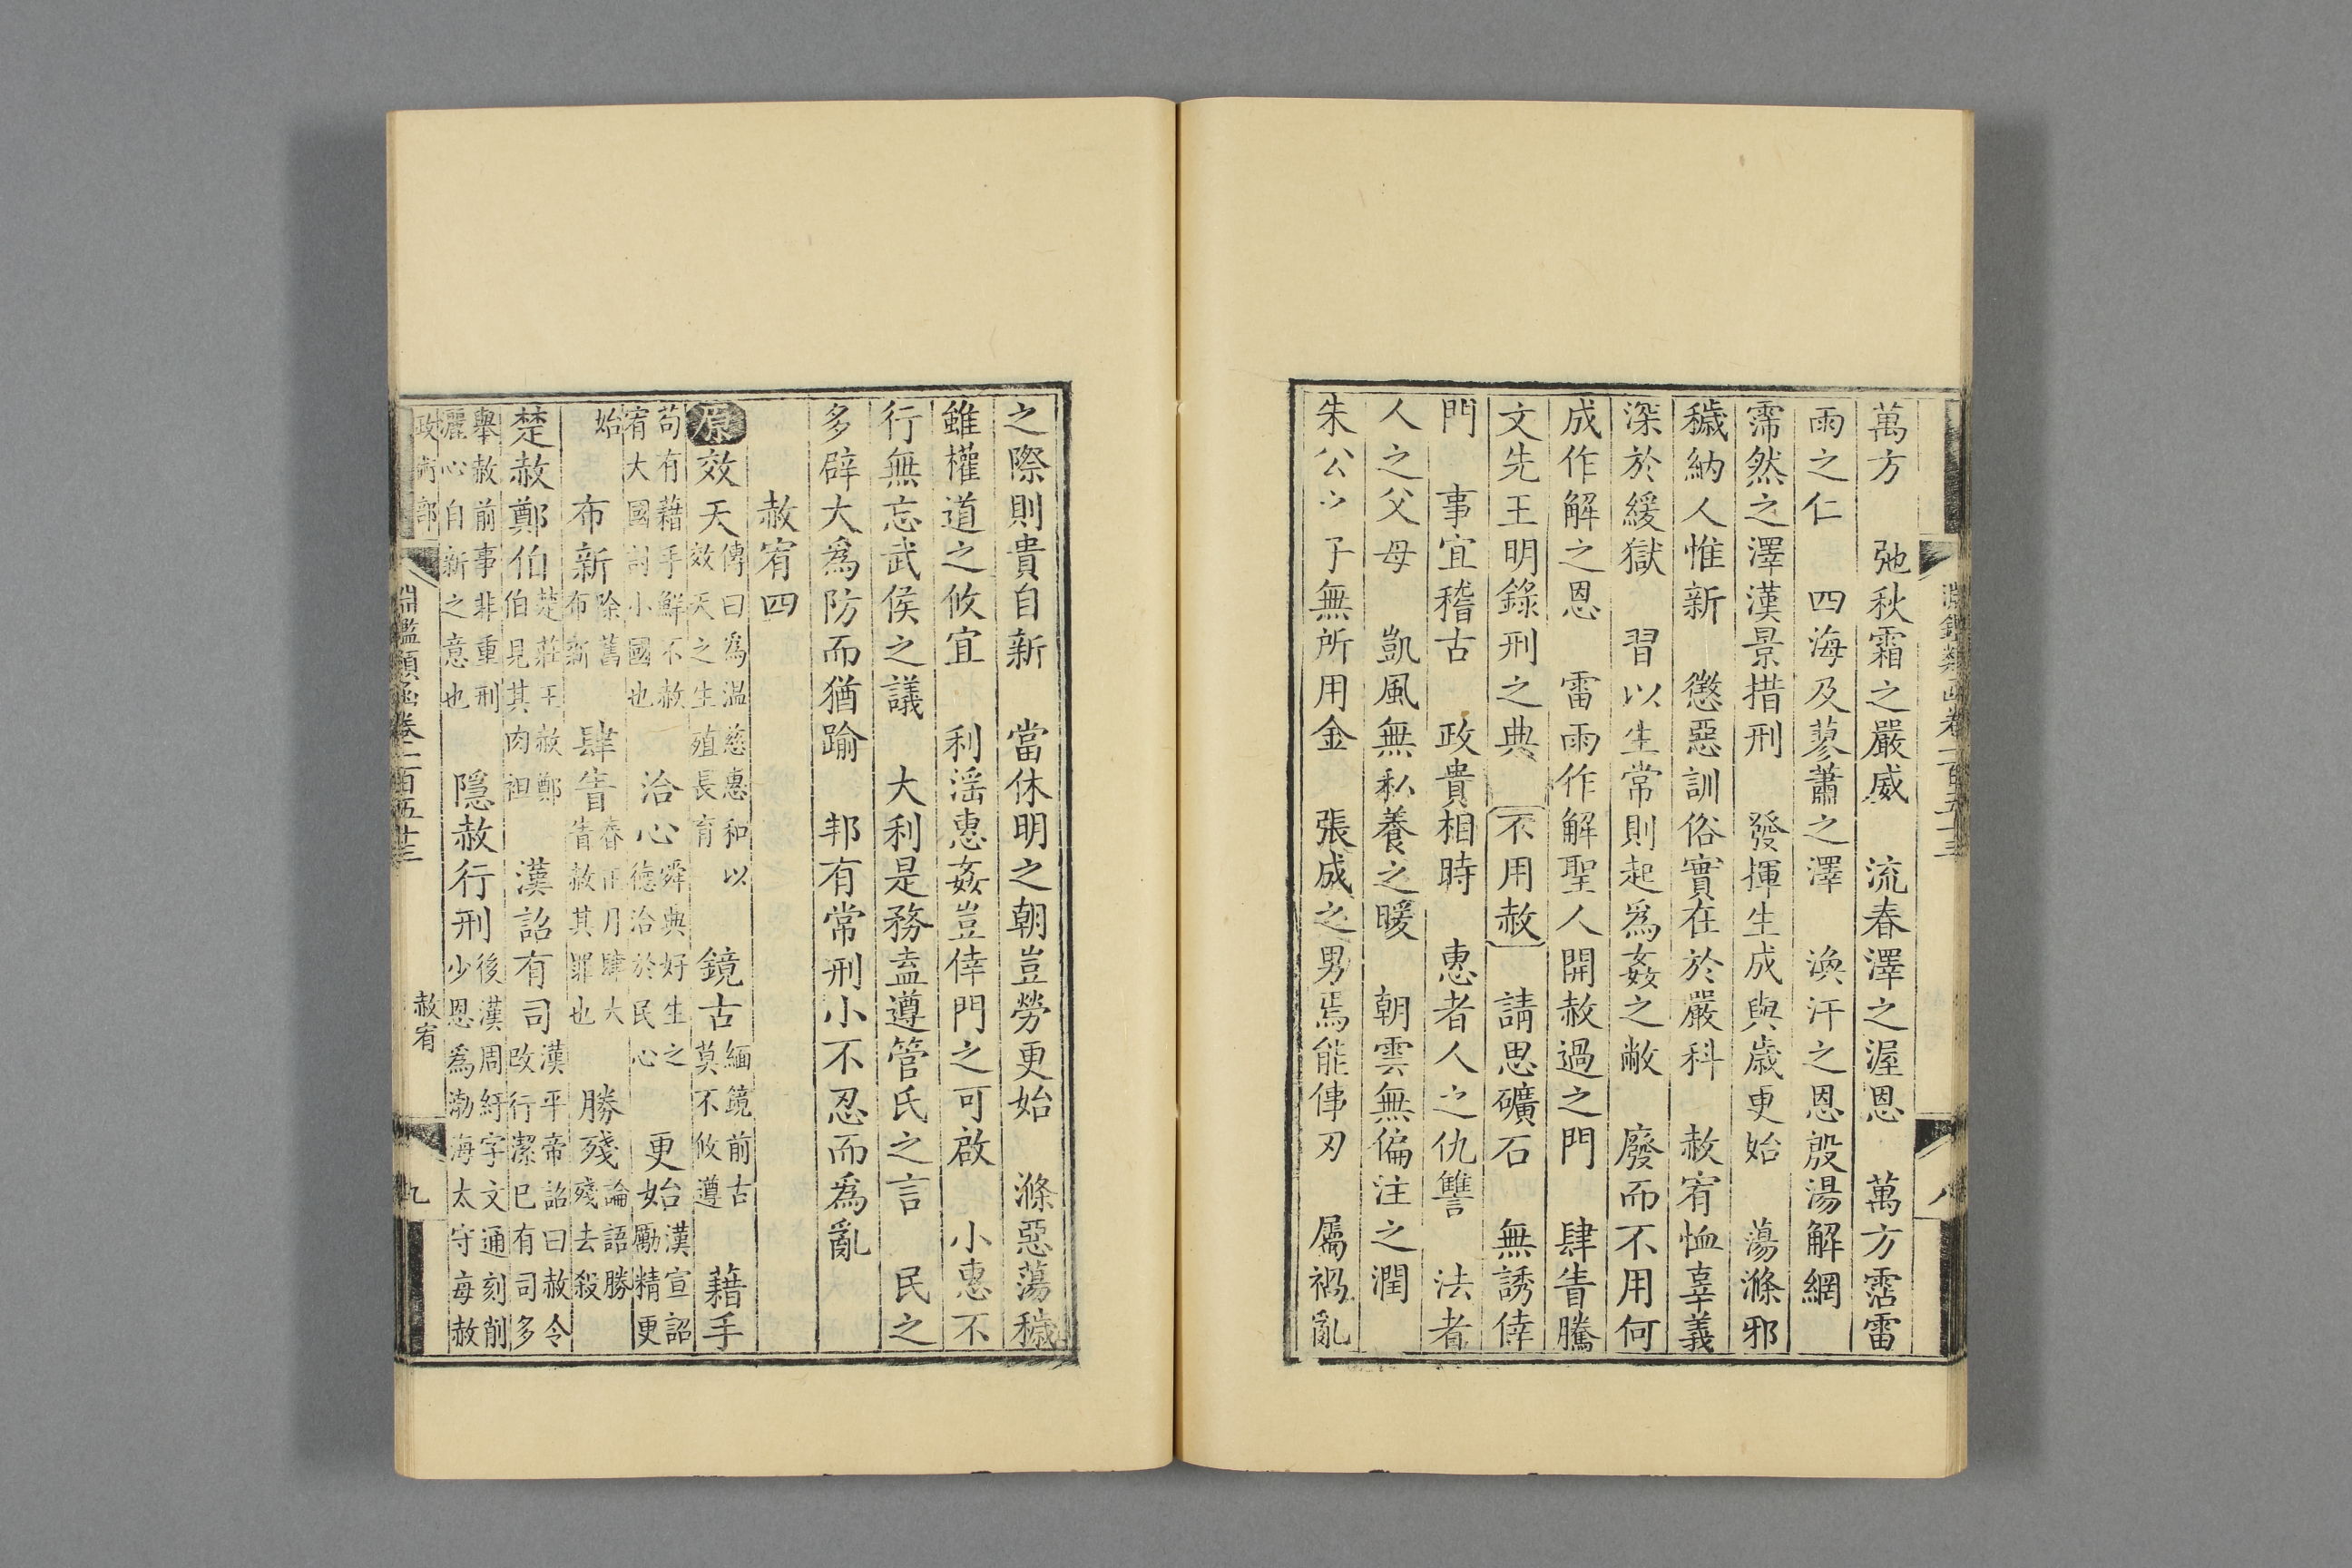 萬方　弛秋霜之嚴威　流春澤之渥恩　萬方霑雷
雨之仁　四海及蓼蕭之澤　渙汗之恩殷湯解網
霈然之澤漢景措刑　發揮生成與歲更始　蕩滌邪
穢納人惟新　懲惡訓俗實在於嚴科　赦宥恤辜義
深於緩獄　習以生常則起爲姦之敝　廢而不用何
成作解之恩　雷雨作解聖人開赦過之門　肆眚騰
文先王明錄刑之典　不用赦　請思礦石　無誘倖
門　事宜稽古　政貴相時　惠者人之仇讐　法者
人之父母　凱風無私養之暖　朝雲無偏注之潤
朱公之子無所用金　張成之男焉能俥刃　屬禍亂
之際則貴自新　當休明之朝豈勞更始　滌惡蕩穢
雖權道之攸宜　利滛惠姦豈倖門之可啟　小惠不
行無忘武侯之議　大利是務盍遵管氏之言　民之
多辟大爲防而猶踰　邦有常刑小不忍而爲亂
赦宥四
原　效天
傳曰爲温慈惠和以
效天之生殖長育
鏡古
緬鏡前古
莫不攸遵
藉手
苟有藉手鮮不赦
宥大國討小國也
洽心
舜典好生之
德洽於民心
更始
漢宣詔
勵精更
始
布新
除舊
布新
肆眚
春正月肆大
眚赦其罪也
勝殘
論語勝
殘去殺
楚赦鄭伯
楚莊王赦鄭
伯見其肉袒
漢詔有司
漢平帝詔曰赦令
改行潔已有司多
舉赦前事非重刑
灑心自新之意也
隱赦行刑
後漢周紆字文通刻削
少恩爲渤海太守每赦
政術部
淵鑑類函卷二百五十三
赦宥
九